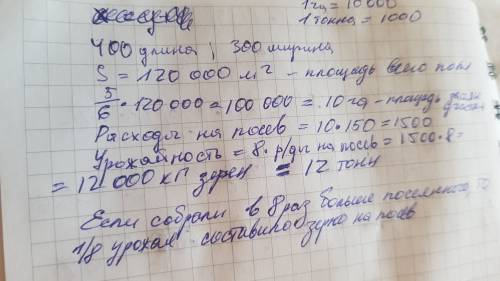 1 га = 10 000
1 тонна = 1000
400 длина, 300 ширина,
S = 120 000 м² - площадь всего поля
5/6 · 120 000 = 100 000 = 10 га - площадь
Расходы на посев = 10 · 150 = 1500
Урожайность = 8 · р/ды на посев = 1500 · 8 =
= 12 000 кг зерен = 12 тонн
Если собрали в 8 раз больше посеянного, то
1/8 урожая составило зерно на посев